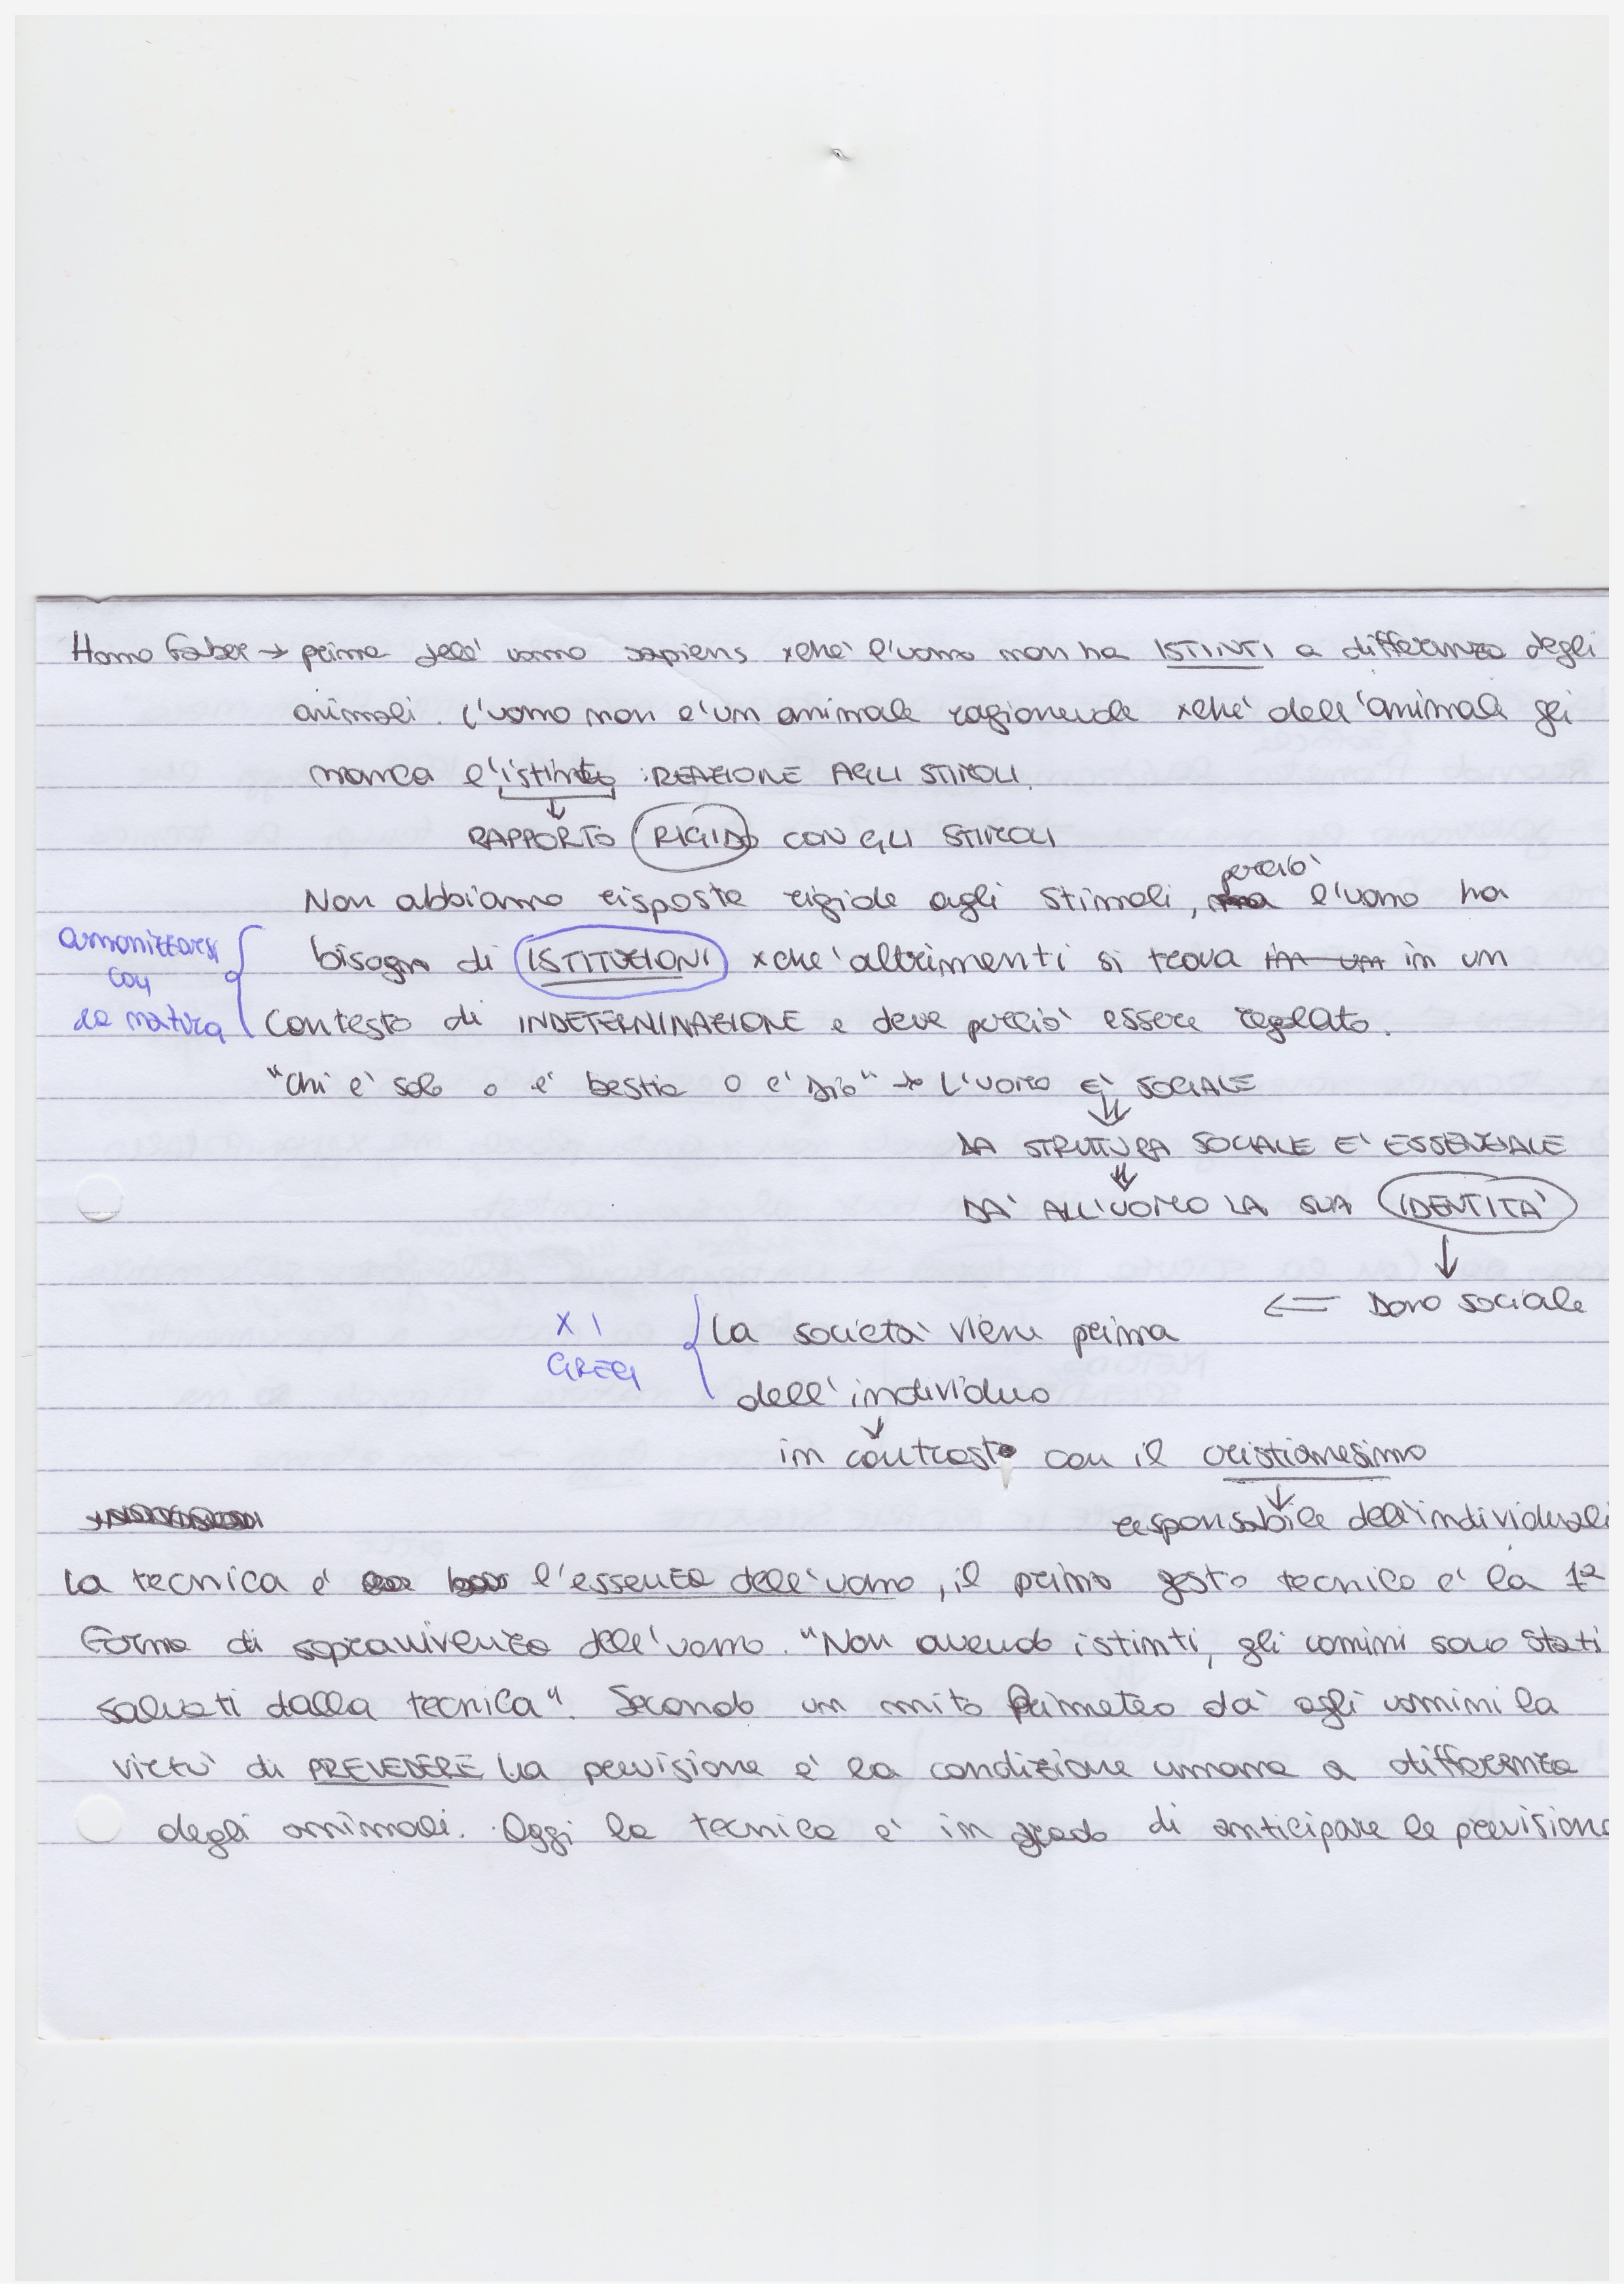 Homo Faber → prima dell' uomo sapiens xchè l'uomo non ha ISTINTI a differenza degli
animali. L'uomo non e' un animale ragionevole xchè dell'animale gli
manca l'istinto : REAZIONE AGLI STIMOLI.
↓
RAPPORTO RIGIDO CON GLI STIMOLI
perciò
Non abbiamo risposte rigide agli stimoli, ma l'uomo ha
armonizzarsi
con
la natura
bisogno di ISTITUZIONI xchè altrimenti si trova in un in un
contesto di INDETERMINAZIONE e deve perciò essere regolato.
"Chi è solo o è bestia o e' Dio" → L'UOMO E' SOCIALE
⇓
LA STRUTTURA SOCIALE E' ESSENZIALE
⇓
DA' ALL'UOMO LA SUA IDENTITA'
↓
⇐ Dono sociale
X I
GRECI
La società viene prima
dell'individuo
↓
in contrasto con il cristianesimo
↓
responsabile dell'individuali
La tecnica e' l'essenza dell'uomo, il primo gesto tecnico e' la 1ª
forma di sopravvivenza dell'uomo. "Non avendo istinti, gli uomini sono stati
salvati dalla tecnica". Secondo un mito Primeteo da' agli uomini la
virtu' di PREVEDERE La previsione e' la condizione umana a differenza
degli animali. Oggi la tecnica e' in grado di anticipare la previsione